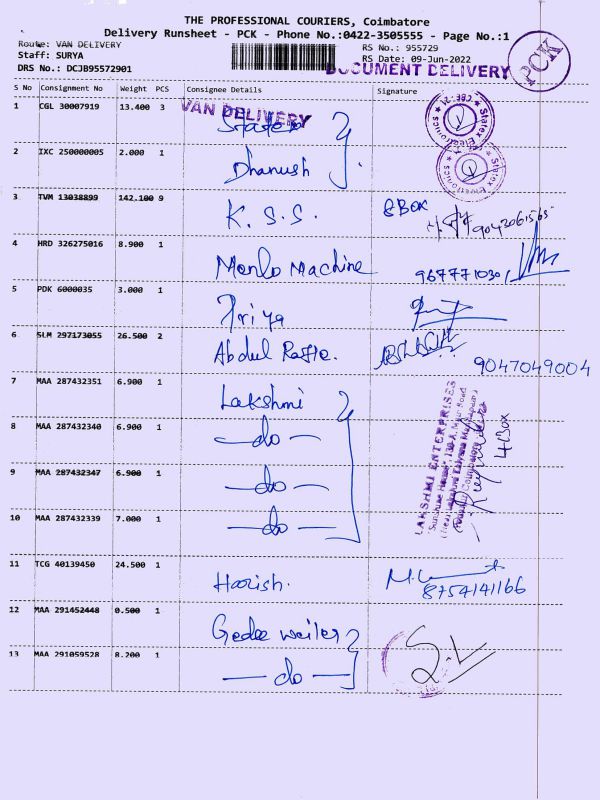 THE PROFESSIONAL COURIERS, Coimbatore
Delivery Runsheet - PCK - Phone No.:0422-3505555 - Page No.:1
Route: VAN DELIVERY
RS No.: 955729
Staff: SURYA
RS Date: 09-Jun-2022
DRS No.: DCJB95572901
DOCUMENT DELIVERY
PCK
S No Consignment No Weight PCS Consignee Details Signature
VAN DELIVERY
1 CGL 30007919 13.400 3
Statex Electronics
2 IXC 250000005 2.000 1
Dhanush
Statex Electronics
3 TVM 13038899 142.100 9
K. S. S. 8 Box
4 HRD 326275016 8.900 1
Menlo Machine
5 PDK 6000035 3.000 1
Priya
6 SLM 297173055 26.500 2
Abdul 9047049004
7 MAA 287432351 6.900 1
Lakshmi
8 MAA 287432340 6.900 1
— do —
9 MAA 287432347 6.900 1
— do —
10 MAA 287432339 7.000 1
— do —
LAKSHMI ENTERPRISES
4 Box
11 TCG 40139450 24.500 1
Harish.
8754141166
12 MAA 291452448 0.500 1
Gedee weiler
13 MAA 291059528 8.200 1
— do —